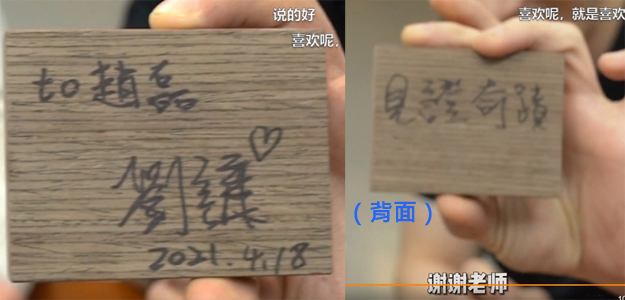 说的好
喜欢呢.
to 趙磊
劉謙♡
2021.4.18
喜欢呢，就是喜欢
見證奇蹟
（背面）
谢谢老师